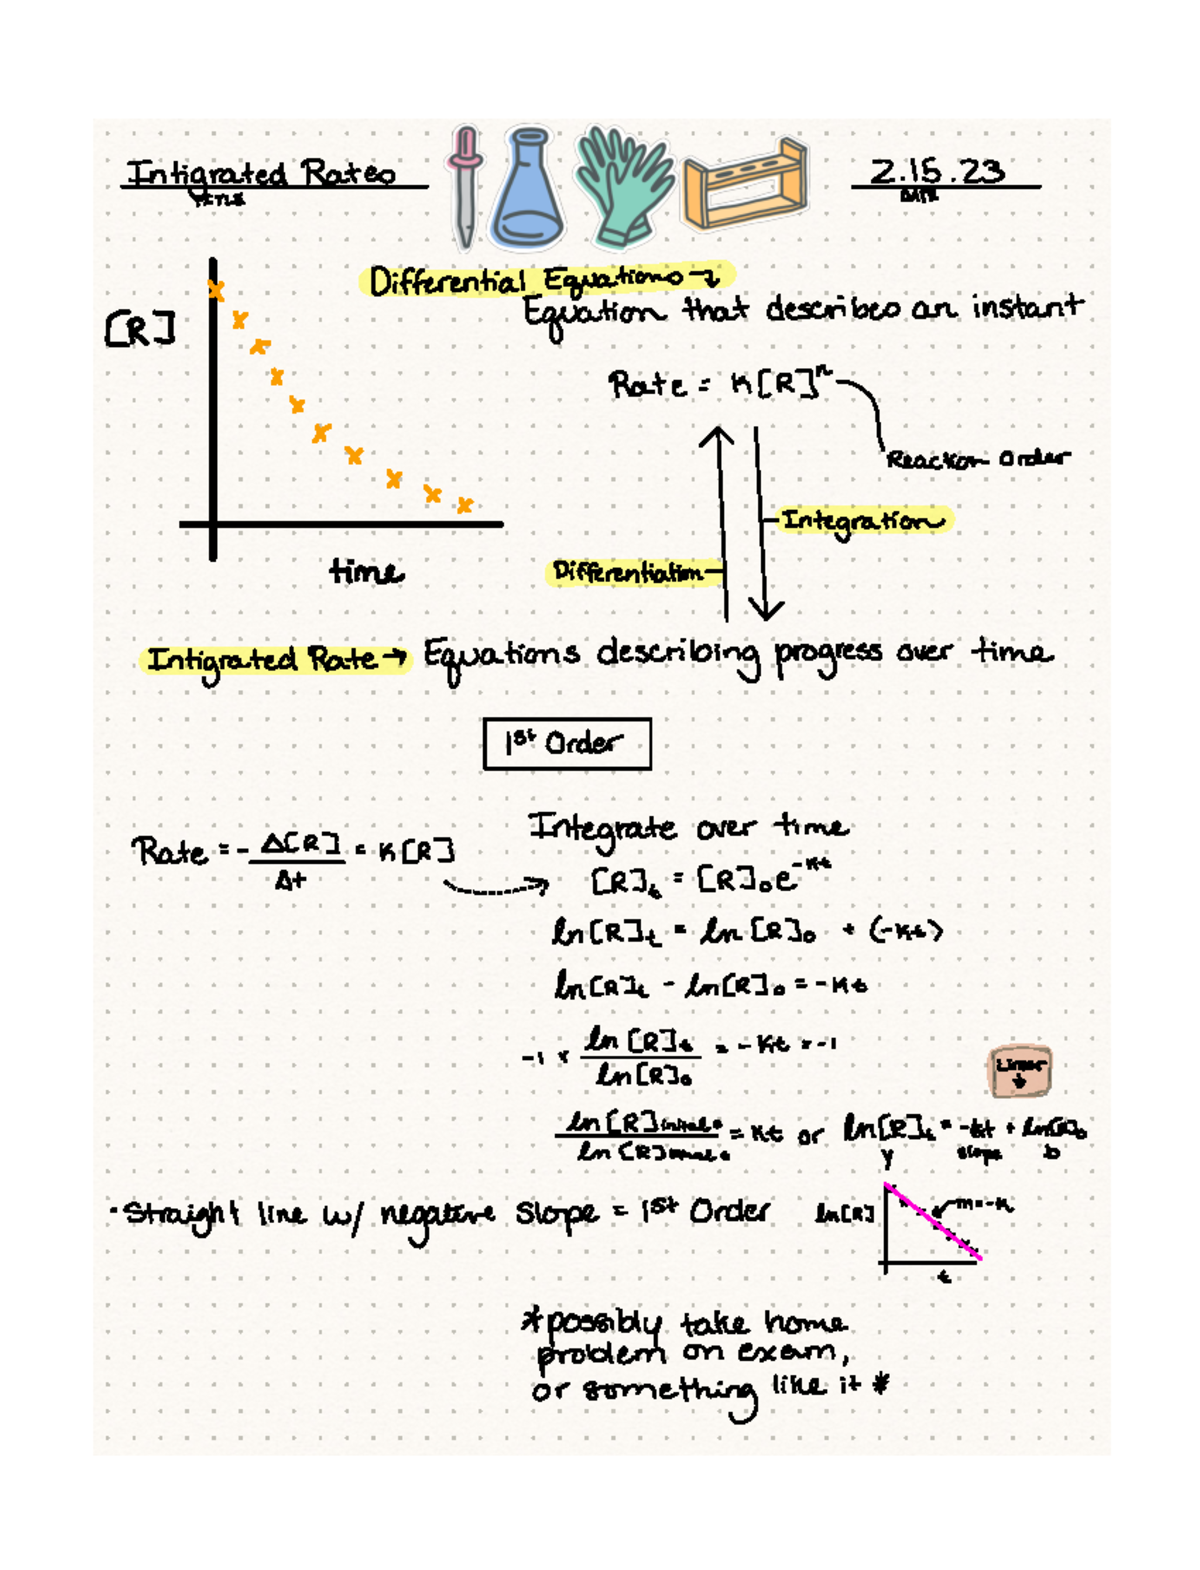 Intigrated Rates
TITLE
2.15.23
DATE
Differential Equations →
Equation that describes an instant
[R]
time
Rate = K[R]ⁿ
Reaction Order
Integration
Differentiation
Intigrated Rate → Equations describing progress over time
1st Order
Rate = - Δ[R] / Δt = K[R]
Integrate over time
[R]t = [R]₀e^-Kt
ln[R]t = ln[R]₀ + (-Kt)
ln[R]t - ln[R]₀ = -Kt
-1 × ln[R]t / ln[R]₀ = -Kt × -1
Linear
↓
ln[R]initial / ln[R] = Kt or ln[R]t = -kt + ln[R]₀
y slope b
• Straight line w/ negative slope = 1st Order
ln[R]
m=-K
t
*possibly take home
problem on exam,
or something like it *